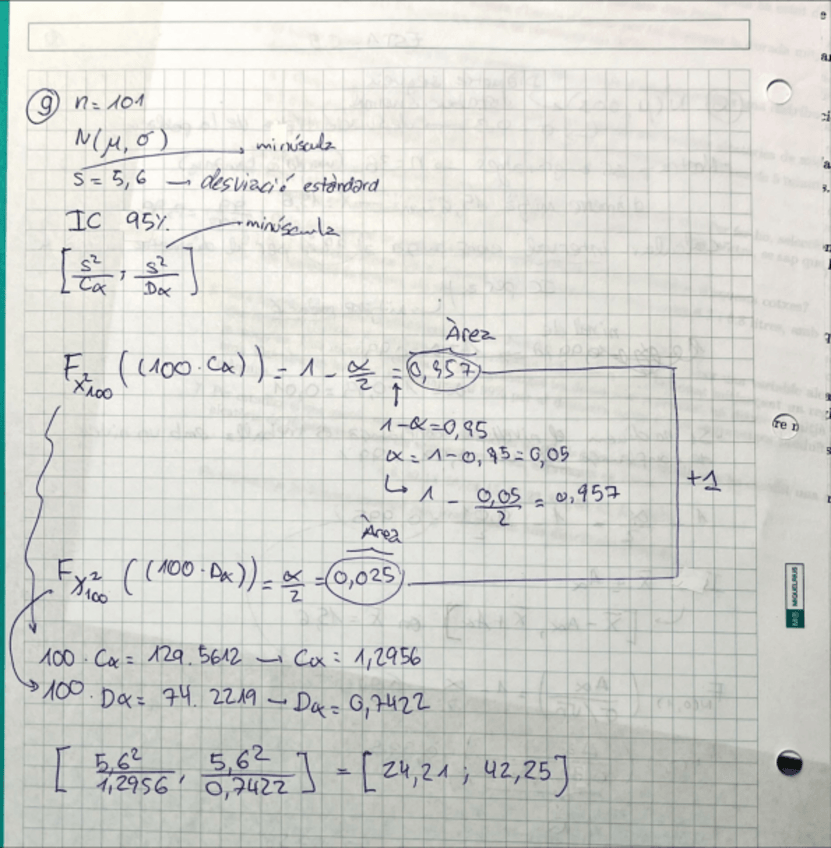 9 n = 101
N(μ, σ)
minúscula
s = 5,6 → desviació estàndard
IC 95%.
minúscula
[ s²/Cα ; s²/Dα ]
Àrea
F χ²100 ((100 · Cα)) = 1 - α/2 = 0,957
1 - α = 0,95
α = 1 - 0,95 = 0,05
↳ 1 - 0,05/2 = 0,957
+1
Àrea
F χ²100 ((100 · Dα)) = α/2 = 0,025
100 · Cα = 129.5612 → Cα = 1,2956
100 · Dα = 74.2219 → Dα = 0,7422
[ 5,6²/1,2956 , 5,6²/0,7422 ] = [ 24,21 ; 42,25 ]
MIQUELRIUS